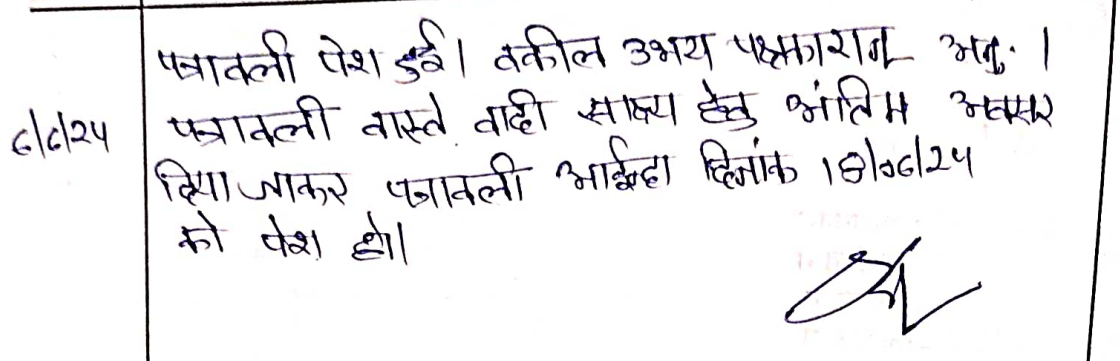 पत्रावली पेश हुई। वकील उभय पक्षकारान अनु. ।
6/6/24 पत्रावली वास्ते वादी साक्ष्य हेतु अंतिम अवसर
दिया जाकर पत्रावली आईन्दा दिनांक 18/06/24
को पेश हो।